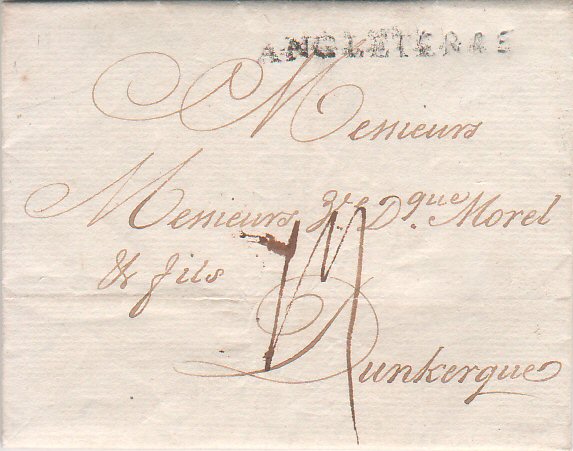 ANGLETERRE
Messieurs
Messieurs Vve Dque Morel
& fils
Dunkerque